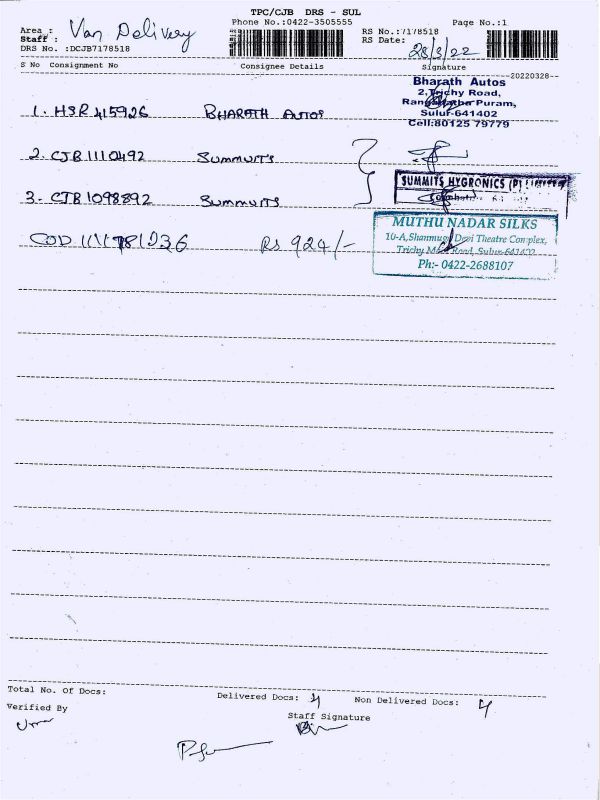 TPC/CJB DRS - SUL
Phone No.:0422-3505555
Page No.:1
Area : Van Delivery
Staff :
DRS No. :DCJB7178518
RS No.:7178518
RS Date: 28/3/22
S No Consignment No Consignee Details Signature
20220328
1. HSR 415926 BHARATH AUTOS
Bharath Autos
2,Trichy Road,
Ranganatha Puram,
Sulur-641402
Cell:80125 79779
2. CJB 1110492 SUMMUITS
3. CJB 1098892 SUMMUITS
SUMMITS HYGRONICS (P) LIMITED
COD Rs 924/-
MUTHU NADAR SILKS
10-A,Shanmuga Devi Theatre Complex,
Trichy Main Road, Sulur-641402
Ph:- 0422-2688107
Total No. Of Docs:
Delivered Docs: 4 Non Delivered Docs: 4
Verified By
Staff Signature